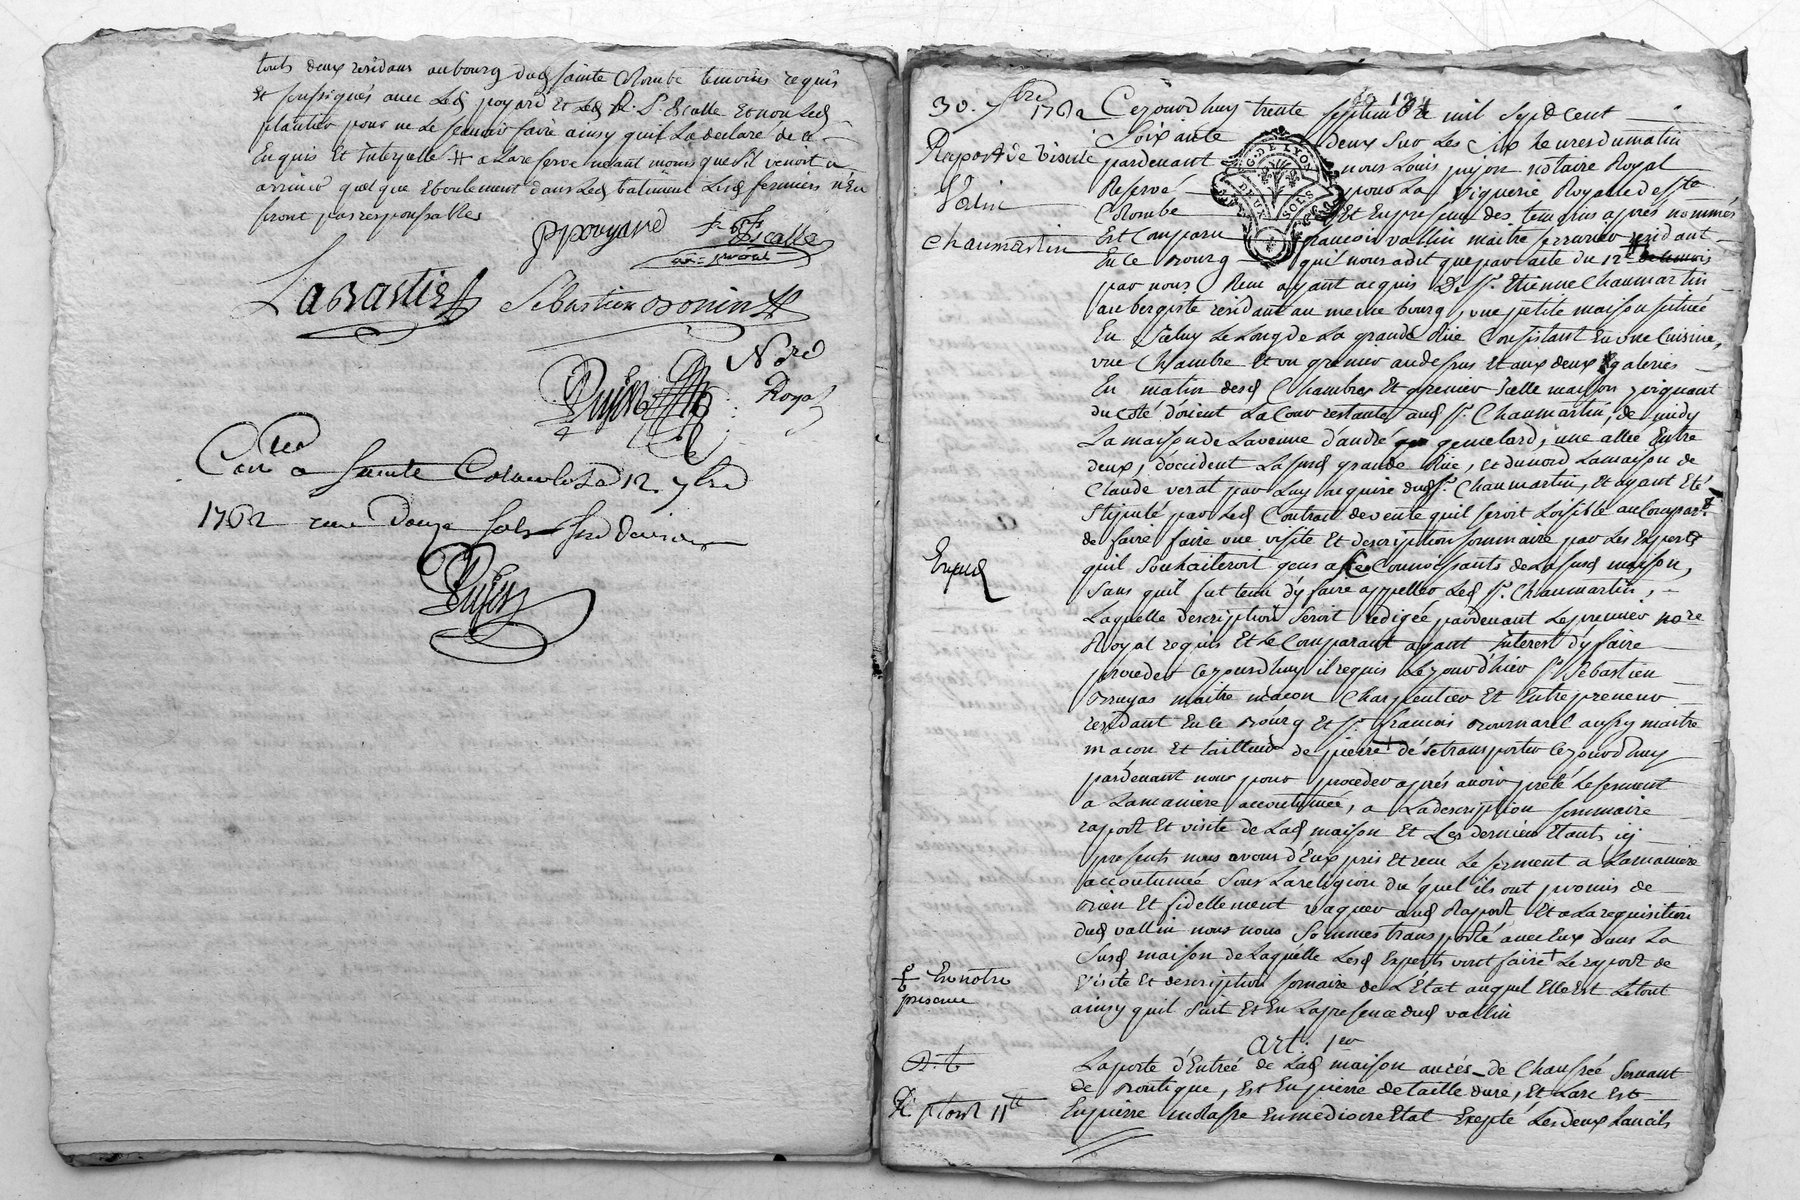 touts deux residans au bourg dud sainte Colombe temoins requis
et soussignés avec Led poyard et Led Sr. P. Escalle et non Led
plantier pour ne le scavoir faire ainsy quil La declaré de ce
Enquis Et Interpellé # a La reserve neant moins que s'il venoit a
arriver quelque Eboulement dans Led batiment Lesd fermiers n'En
seront pas responsables
Ppouyard
Escalle
LaBastie
Sebastien Bonin
Pujon Nore
Royal
Con lé a Sainte Colombe Le 12. 7bre
1762 reçu Douze sols
Pujon
30. 7bre 1762
Raport de Visite
Vallin
Chaumartin
Cejourd'huy trente septembre mil sept Cent
Soixante deux Sur Les Six heures du matin
pardevant nous Louis pujon notaire Royal
Reservé pour La Viguerie Royalle de Ste
Colombe Et En presence des temoins après nommés
G. DE LYON
DEUX SOLS
Est Comparu françois vallin maitre serrurier residant
En Ce Bourg qui nous a dit que par acte du 12e
par nous Reçu ayant acquis De Sr. Etienne Chaumartin
aubergiste residant au meme bourg, une petite maison située
En Iceluy Le Long de La grande Rüe Consistant En une Cuisine,
une Chambre Et un grenier au dessus Et aux deux galeries
En matin desd Chambres Et grenier Icelle maison joignant
du coté d'orient La Cour restante aud Sr. Chaumartin, de midy
La maison de La veuve d'andré gemelard, une allée Entre
deux, d'occident La susd grande Rüe, et du nord La maison de
Claude verat par Luy acquise dud Sr. Chaumartin, Et ayant Eté
Stipulé par Led Contrat de vente quil seroit Loisible au Compart
de faire faire une visite Et description sommaire par Les Experts
quil Souhaiteroit gens a Ce Connoissants de La susd maison,
Sans quil fut tenu d'y faire appeller Led Sr. Chaumartin,
Laquelle description seroit redigée pardevant Le premier nore
Royal requis Et le Comparant ayant Interest d'y faire
proceder Cejourdhuy il requis Le jour d'hier Sr Sebastien
Bruyas maitre maçon Charpentier Et Entrepreneur
residant En Ce Bourg Et Sr. françois Bournarel aussy maitre
maçon Et tailleur de pierre de se transporter Cejourdhuy
pardevant nous pour proceder après avoir preté Le serment
a La maniere accoutumée, a La description sommaire
raport Et visite de Lad maison Et Les derniers Etants icy
presents nous avons d'Eux pris Et reçu Le serment a La maniere
accoutumée Sous La religion du quel ils ont promis de
bien Et fidellement vaquer aud Raport Et a La requisition
dud vallin nous nous Sommes transporté avec Eux dans La
Susd maison de Laquelle Lesd Experts vont faire + Le raport de
+ En notre
presence
visite Et description somaire de L'Etat auquel Elle Est Le tout
ainsy quil Suit Et En La presence dud vallin
art. 1er
La porte d'Entrée de Lad maison au rés-de Chaussée Servant
de Boutique, Est En pierre de taille dure, Et Larc Est
En pierre molasse En mediocre Etat Excepté Les deux Lancils